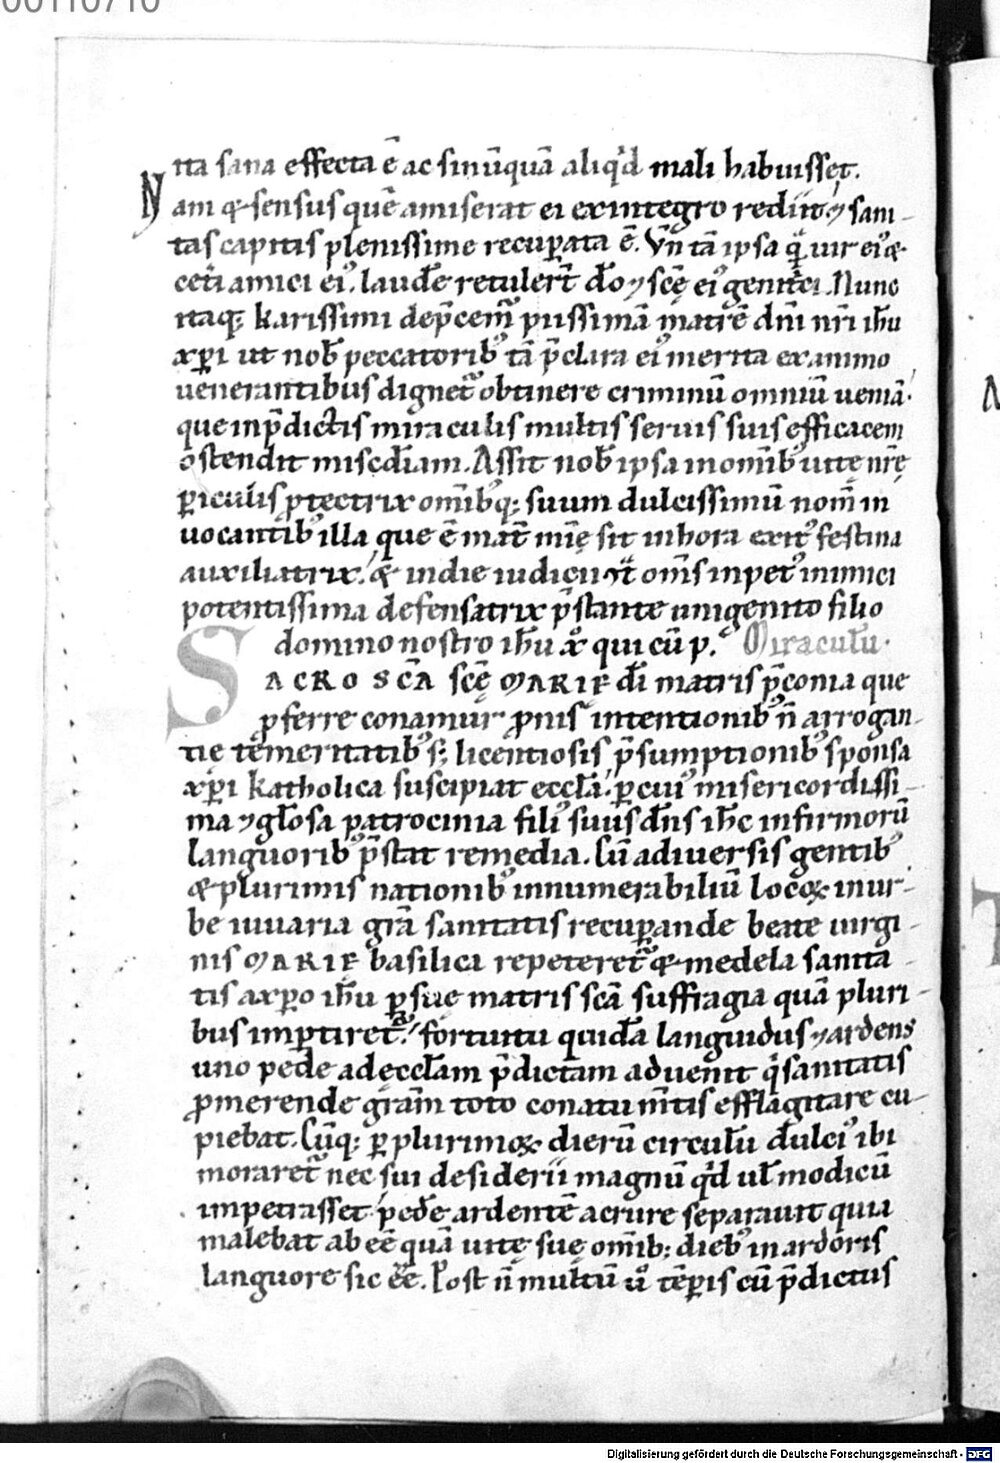 00110710
ita sana effecta ē ac si nūquā aliqͥd mali habuisset.
Nam & sensus quē amiserat ei ex integro rediit. ⁊ sani-
tas capitis plenissime recuꝑata ē. Vn̄ tā ipsa q̄ uir eiꝰ &
cet̄i amici eiꝰ. laudes retuler̄t dō ⁊ scę̄ eiꝰ genitͥci. Nunc
itaq; karissimi dep̄cem̄ piissimā matrē dn̄i nr̄i ih̄u
xp̄i ut nob̄ peccatoribꝰ tā p̄clara eiꝰ merita ex animo
uenerantibus dignet᷑ obtinere criminū omniū ueniā.
que in p̄dictis miraculis multis seruis suis efficacem
ostendit misc̄diam. Assit nob̄ ipsa in om̄ibꝰ uitę nr̄ę
ꝑiculis ꝓtectrix om̄ibꝰq; suum dulcissimū nom̄ in
uocantibꝰ illa que ē mat̄ mi͞ę sit in hora exitꝰ festina
auxiliatrix. & in die iudicii ⁊t̄ om̄s inpetꝰ inimici
potentissima defensatrix p̄stante unigenito filio
domino nostro ih̄u xͦ qui cū p. Miraculū.
SACROSCA̅ scę̄ MARIE dī matris p̄conia que
ꝓferre conamur ꝓnis intentionibꝰ n̄ arrogan-
tie temeritatibꝰ s; licentiosis p̄sumptionibꝰ sponsa
xp̄i katholica suscipiat eccl̄a. ꝑ cuiꝰ misericordissi-
ma ⁊ gl̄osa patrocinia filiꝰ suus dn̄s ih̄c infirmorū
languoribꝰ p̄stat remedia. Cū a diuersis gentibꝰ
& plurimis nationibꝰ innumerabiliū locoꝝ in ur-
be iuuaria grā sanitatis recuꝑande beate uirgi-
nis MARIE basilica repeteret᷑ & medela sanita-
tis a xp̄o ih̄u ꝑ suę matris scā suffragia quā pluri-
bus imꝑtiret᷑. fortuitu quidā languidus ⁊ ardens
uno pede ad ęccl̄am p̄dictam aduenit qͥ sanitatis
ꝓmerende grām toto conatu m̄tis efflagitare cu-
piebat. Cūq; ꝑ plurimoꝝ dierū circulū dulciꝰ ibi
moraret᷑ nec sui desiderii magnū qͥd ul̄ modicū
impetrasset pede ardentē a crure separauit quia
malebat ab eē quā uitę suę om̄ib; diebꝰ in ardoris
languore sic eē. Post n̄ multū uͦ tēꝑis cū p̄dictus
Digitalisierung gefördert durch die Deutsche Forschungsgemeinschaft - DFG